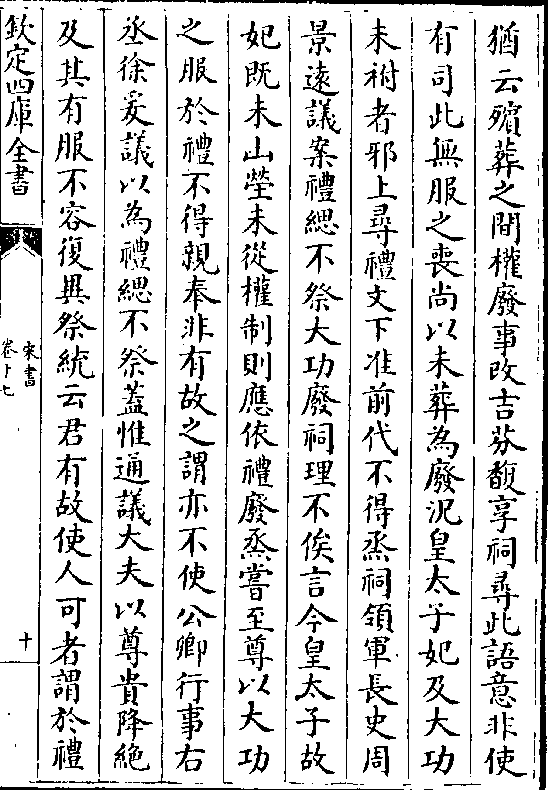 猶云殯葬之間權廢事改吉芬馥享祠尋此語意非使
有司此無服之喪尚以未葬為廢況皇太子妃及大功
未祔者邪上尋禮文下准前代不得烝祠領軍長史周
景遠議案禮緦不祭大功廢祠理不俟言今皇太子故
妃既未山塋未從權制則應依禮廢烝嘗至尊以大功
之服於禮不得親奉非有故之謂亦不使公卿行事右
丞徐爰議以為禮緦不祭蓋惟通議大夫以尊貴降絶
及其有服不容復異祭統云君有故使人可者謂於禮
欽定四庫全書
宋書
卷十七
十